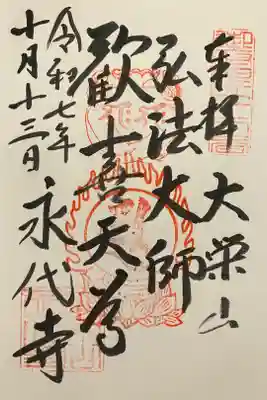 奉拝 大栄山
弘法大師
歓喜天尊
永代寺
令和七年
十月十三日